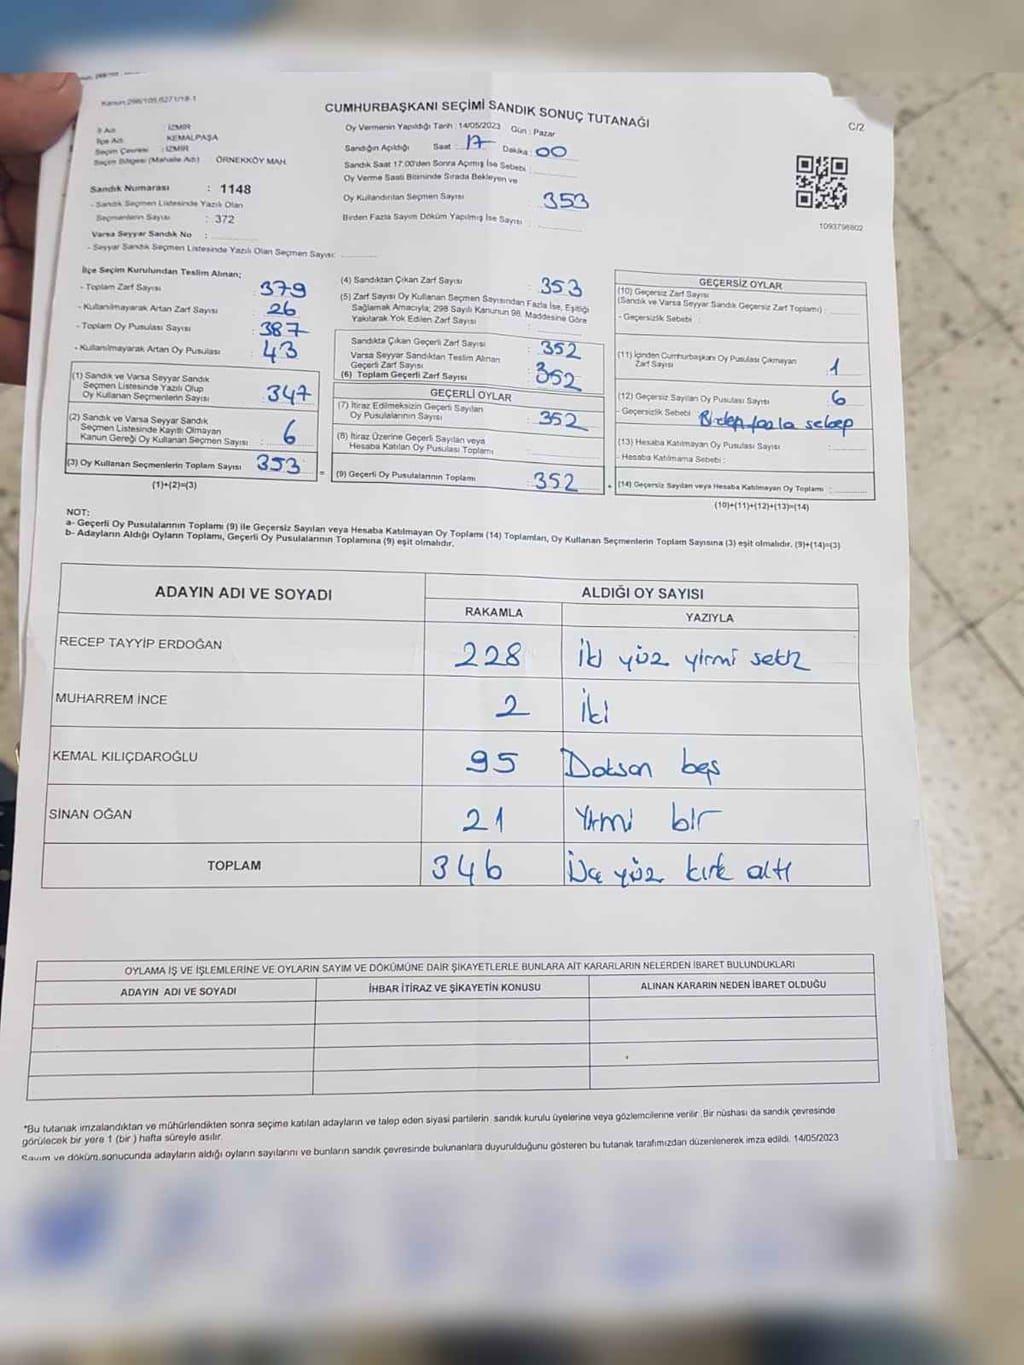 Kanun:298/105,6271/18-1
CUMHURBAŞKANI SEÇİMİ SANDIK SONUÇ TUTANAĞI
C/2
İl Adı : İZMİR
İlçe Adı : KEMALPAŞA
Seçim Çevresi : İZMİR
Seçim Bölgesi (Mahalle Adı) ÖRNEKKÖY MAH.
Sandık Numarası : 1148
- Sandık Seçmen Listesinde Yazılı Olan
Seçmenlerin Sayısı : 372
Varsa Seyyar Sandık No :
- Seyyar Sandık Seçmen Listesinde Yazılı Olan Seçmen Sayısı:
Oy Vermenin Yapıldığı Tarih : 14/05/2023 Gün : Pazar
Sandığın Açıldığı Saat : 17 Dakika : 00
Sandık Saat 17:00'den Sonra Açmış İse Sebebi :
Oy Verme Saati Bitiminde Sırada Bekleyen ve
Oy Kullandırılan Seçmen Sayısı 353
Birden Fazla Sayım Döküm Yapılmış İse Sayısı :
1093796802
İlçe Seçim Kurulundan Teslim Alınan;
- Toplam Zarf Sayısı : 379
- Kullanılmayarak Artan Zarf Sayısı : 26
- Toplam Oy Pusulası Sayısı : 387
- Kullanılmayarak Artan Oy Pusulası : 43
(1) Sandık ve Varsa Seyyar Sandık
Seçmen Listesinde Yazılı Olup
Oy Kullanan Seçmenlerin Sayısı : 347
(2) Sandık ve Varsa Seyyar Sandık
Seçmen Listesinde Kayıtlı Olmayan
Kanun Gereği Oy Kullanan Seçmen Sayısı : 6
(3) Oy Kullanan Seçmenlerin Toplam Sayısı 353
(1)+(2)=(3)
(4) Sandıktan Çıkan Zarf Sayısı : 353
(5) Zarf Sayısı Oy Kullanan Seçmen Sayısından Fazla İse, Eşitliği
Sağlamak Amacıyla; 298 Sayılı Kanunun 98. Maddesine Göre
Yakılarak Yok Edilen Zarf Sayısı :
Sandıkta Çıkan Geçerli Zarf Sayısı : 352
Varsa Seyyar Sandıktan Teslim Alınan
Geçerli Zarf Sayısı :
(6) Toplam Geçerli Zarf Sayısı 352
GEÇERLİ OYLAR
(7) İtiraz Edilmeksizin Geçerli Sayılan
Oy Pusulalarının Sayısı : 352
(8) İtiraz Üzerine Geçerli Sayılan veya
Hesaba Katılan Oy Pusulası Toplamı :
= (9) Geçerli Oy Pusulalarının Toplamı : 352
GEÇERSİZ OYLAR
(10) Geçersiz Zarf Sayısı
(Sandık ve Varsa Seyyar Sandık Geçersiz Zarf Toplamı) :
- Geçersizlik Sebebi :
(11) İçinden Cumhurbaşkanı Oy Pusulası Çıkmayan
Zarf Sayısı : 1
(12) Geçersiz Sayılan Oy Pusulası Sayısı : 6
- Geçersizlik Sebebi : Birden fazla sebep
(13) Hesaba Katılmayan Oy Pusulası Sayısı :
- Hesaba Katılmama Sebebi :
+ (14) Geçersiz Sayılan veya Hesaba Katılmayan Oy Toplamı :
(10)+(11)+(12)+(13)=(14)
NOT:
a- Geçerli Oy Pusulalarının Toplamı (9) ile Geçersiz Sayılan veya Hesaba Katılmayan Oy Toplamı (14) Toplamları, Oy Kullanan Seçmenlerin Toplam Sayısına (3) eşit olmalıdır. (9)+(14)=(3)
b- Adayların Aldığı Oyların Toplamı, Geçerli Oy Pusulalarının Toplamına (9) eşit olmalıdır.
ADAYIN ADI VE SOYADI ALDIĞI OY SAYISI
RAKAMLA YAZIYLA
RECEP TAYYİP ERDOĞAN 228 İki yüz yirmi sekiz
MUHARREM İNCE 2 İki
KEMAL KILIÇDAROĞLU 95 Doksan beş
SİNAN OĞAN 21 Yirmi bir
TOPLAM 346 Üç yüz kırk altı
OYLAMA İŞ VE İŞLEMLERİNE VE OYLARIN SAYIM VE DÖKÜMÜNE DAİR ŞİKAYETLERLE BUNLARA AİT KARARLARIN NELERDEN İBARET BULUNDUKLARI
ADAYIN ADI VE SOYADI İHBAR İTİRAZ VE ŞİKAYETİN KONUSU ALINAN KARARIN NEDEN İBARET OLDUĞU
*Bu tutanak imzalandıktan ve mühürlendikten sonra seçime katılan adayların ve talep eden siyasi partilerin sandık kurulu üyelerine veya gözlemcilerine verilir .Bir nüshası da sandık çevresinde
görülecek bir yere 1 (bir ) hafta süreyle asılır.
Sayım ve döküm sonucunda adayların aldığı oyların sayılarını ve bunların sandık çevresinde bulunanlara duyurulduğunu gösteren bu tutanak tarafımızdan düzenlenerek imza edildi. 14/05/2023